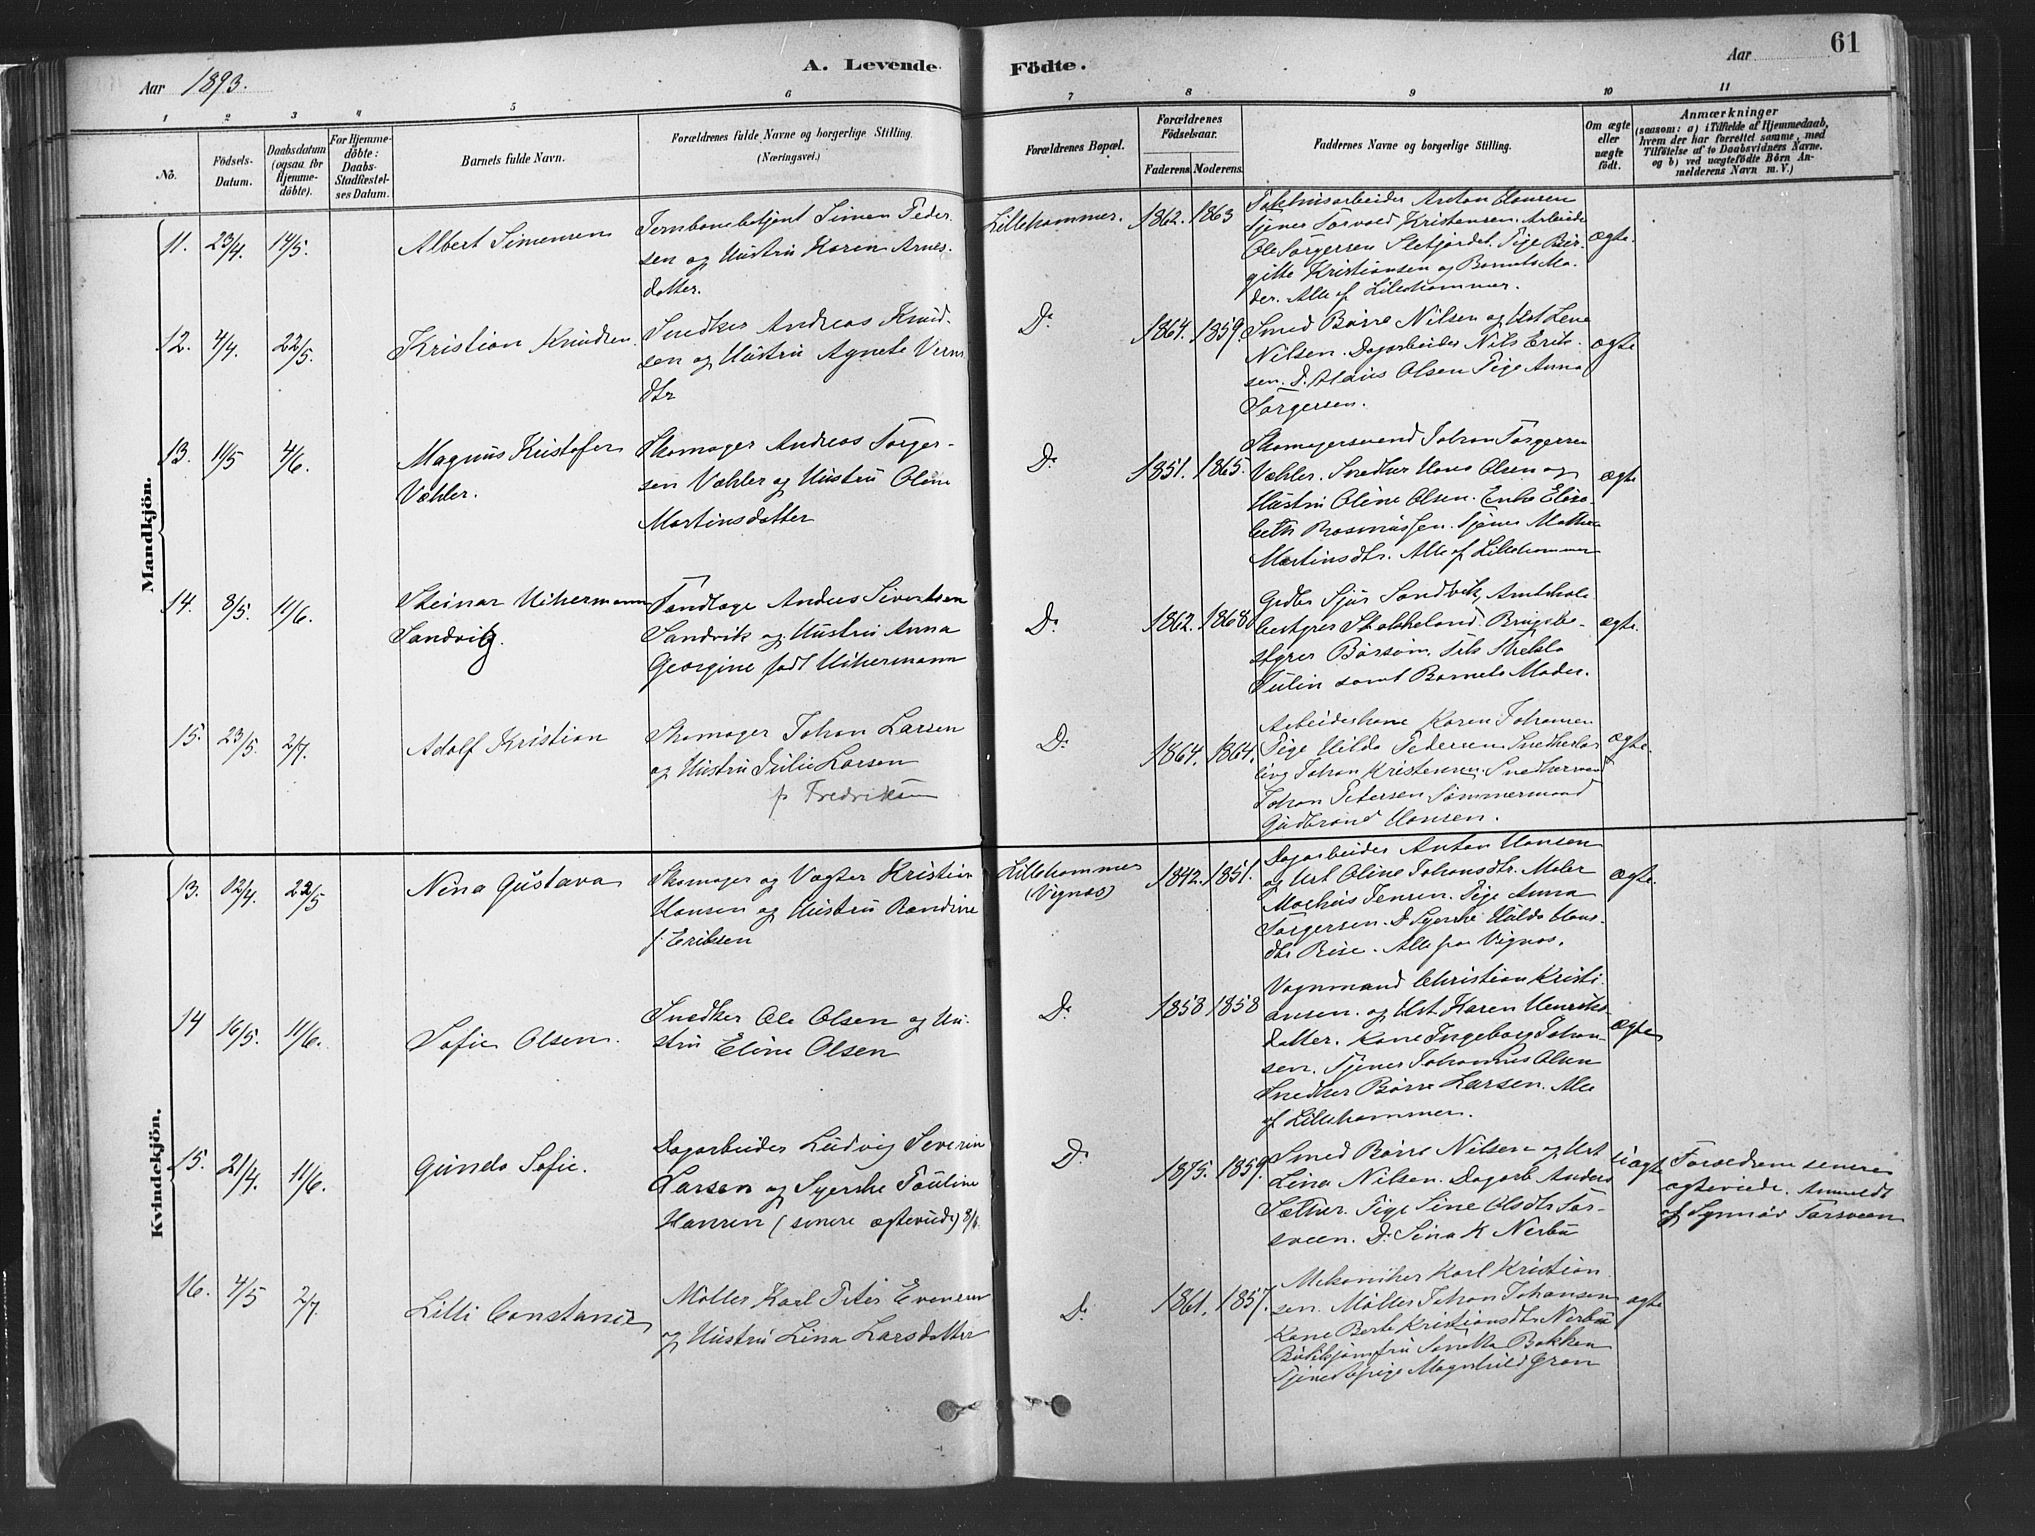 Aar 1893.
A. Levende Födte.
Aar
61
1 2 3 4 5 6 7 8 9 10 11
No.
Födsels-Datum.
Daabsdatum (ogsaa for Hjemme-döbte).
For Hjemme-döbte: Daabs-Stadfæstel-ses Datum.
Barnets fulde Navn.
Forældrenes fulde Navne og borgerlige Stilling.
(Næringsvei.)
Forældrenes Bopæl.
Forældrenes Födselsaar.
Faderens. Moderens.
Faddernes Navne og borgerlige Stilling.
Om ægte eller uægte födt.
Anmærkninger
(saasom: a) i Tilfælde af Hjemmedaab,
hvem der har forrettet samme, med
Tilföielse af to Daabsvidners Navne.
og b) ved uægtefödte Börn An-
melderens Navn m. V.)
Mandkjön.
11. 23/4. 14/5.
Albert Simensen
Jernbanebetjent Simen Peder
sen og Hustru Karen Arnes
datter.
Lillehammer. 1862. 1863
Anton Hansen
Tjener Torvald Kristensen. Arbeider
Ole Torgersen Sletjordet. Pige Bir
gitte Kristiansen og Barnets Mo
der. Alle af Lillehammer.
ægte.
12. 4/4. 22/5.
Kristian Knudsen
Snedker Andreas Knud
sen og Hustru Agnete
dtr
Do 1864. 1859
Smed Börre Nilsen og Hst Lene
Nilsen. Dagarbeider Nils Erik
sen. Do Olaus Olsen Pige Anna
Torgersen.
ægte
13. 11/5 4/6.
Magnus Kristofer
Væhler.
Skomager Andreas Torger-
sen Væhler og Hustru Oline
Martinsdatter
Do 1851. 1865.
Skomagersvend Johan Torgersen
Væhler. Snedker Hans Olsen og
Hustru Oline Olsen. Enke Elisa
beth Rasmussen. Tjener Mathea
Martinsdtr. Alle af Lillehammer
ægte
14. 8/5. 11/6.
Steinar Uchermann
Sandvig.
Tandlæge Anders Sivertsen
Sandvik og Hustru Anna
Georgine født Uchermann
Do 1862. 1868
Gdbr Sjur Sandvik, Amtskole
bestyrer Stakkeland. Brugsbe-
styrer Börsöm. Frk Thekla
Tulin samt Barnets Moder.
ægte.
15. 23/5. 2/7.
Adolf Kristian
Skomager Johan Larsen
og Hustru Julie Larsen
f. Fredriksen
Do 1864. 1864.
Arbeiderkone Karen Johansen
Pige Hilda Pedersen Snedkerlær
ling Johan Kristensen. Snedkersvend
Johan Petersen Tömmermand
Gudbrand Hansen.
ægte.
Kvindekjön.
13. 12/4. 22/5
Nina Gustava
Skomager og Vægter Kristian
Hansen og Hustru Randine
f. Eriksen
Lillehammer
(Vignes)
1842. 1851.
Dagarbeider Anton Hansen
og Hst Oline Johansdtr. Maler
Jensen. Pige Anna
Torgersen. Do Syerske Hulda Hans
dtr Rise. Alle fra Vignes.
ægte.
14 16/5. 11/6.
Sofie Olsen.
Snedker Ole Olsen og Hu-
stru Eline Olsen
Do 1858 1858
Vognmand Christian Kristi
ansen. og Hst Karen Henriks
datter. Kone Ingeborg Johan-
sen. Tjener Johannes Olsen
Snedker Börre Larsen. Alle
af Lillehammer.
ægte
15. 21/4. 11/6.
Gunda Sofie.
Dagarbeider Ludvig Severin
Larsen og Syerske Pauline
Hansen (senere ægteviede) 8/6.
Do 1875. 1859.
Smed Börre Nilsen og Hst
Lina Nilsen. Dagarb Anders
Sæther. Pige Sine Olsdtr Tor-
sveen. Do Sina K Nerbü
uægte
Forældrene senere
ægteviede. Anmeldt
af Synnöv Torsveen
16. 4/5 2/7.
Lilli Constance
Möller Karl Peter Evensen
og Hustru Lina Larsdatter
Do 1861. 1857.
Mekaniker Karl Kristian
sen. Möller Johan Johansen
Kone Berte Kristiansdtr Nerbü
Butikjomfru Bakken
Tjenestepige Magnhild Gran
ægte